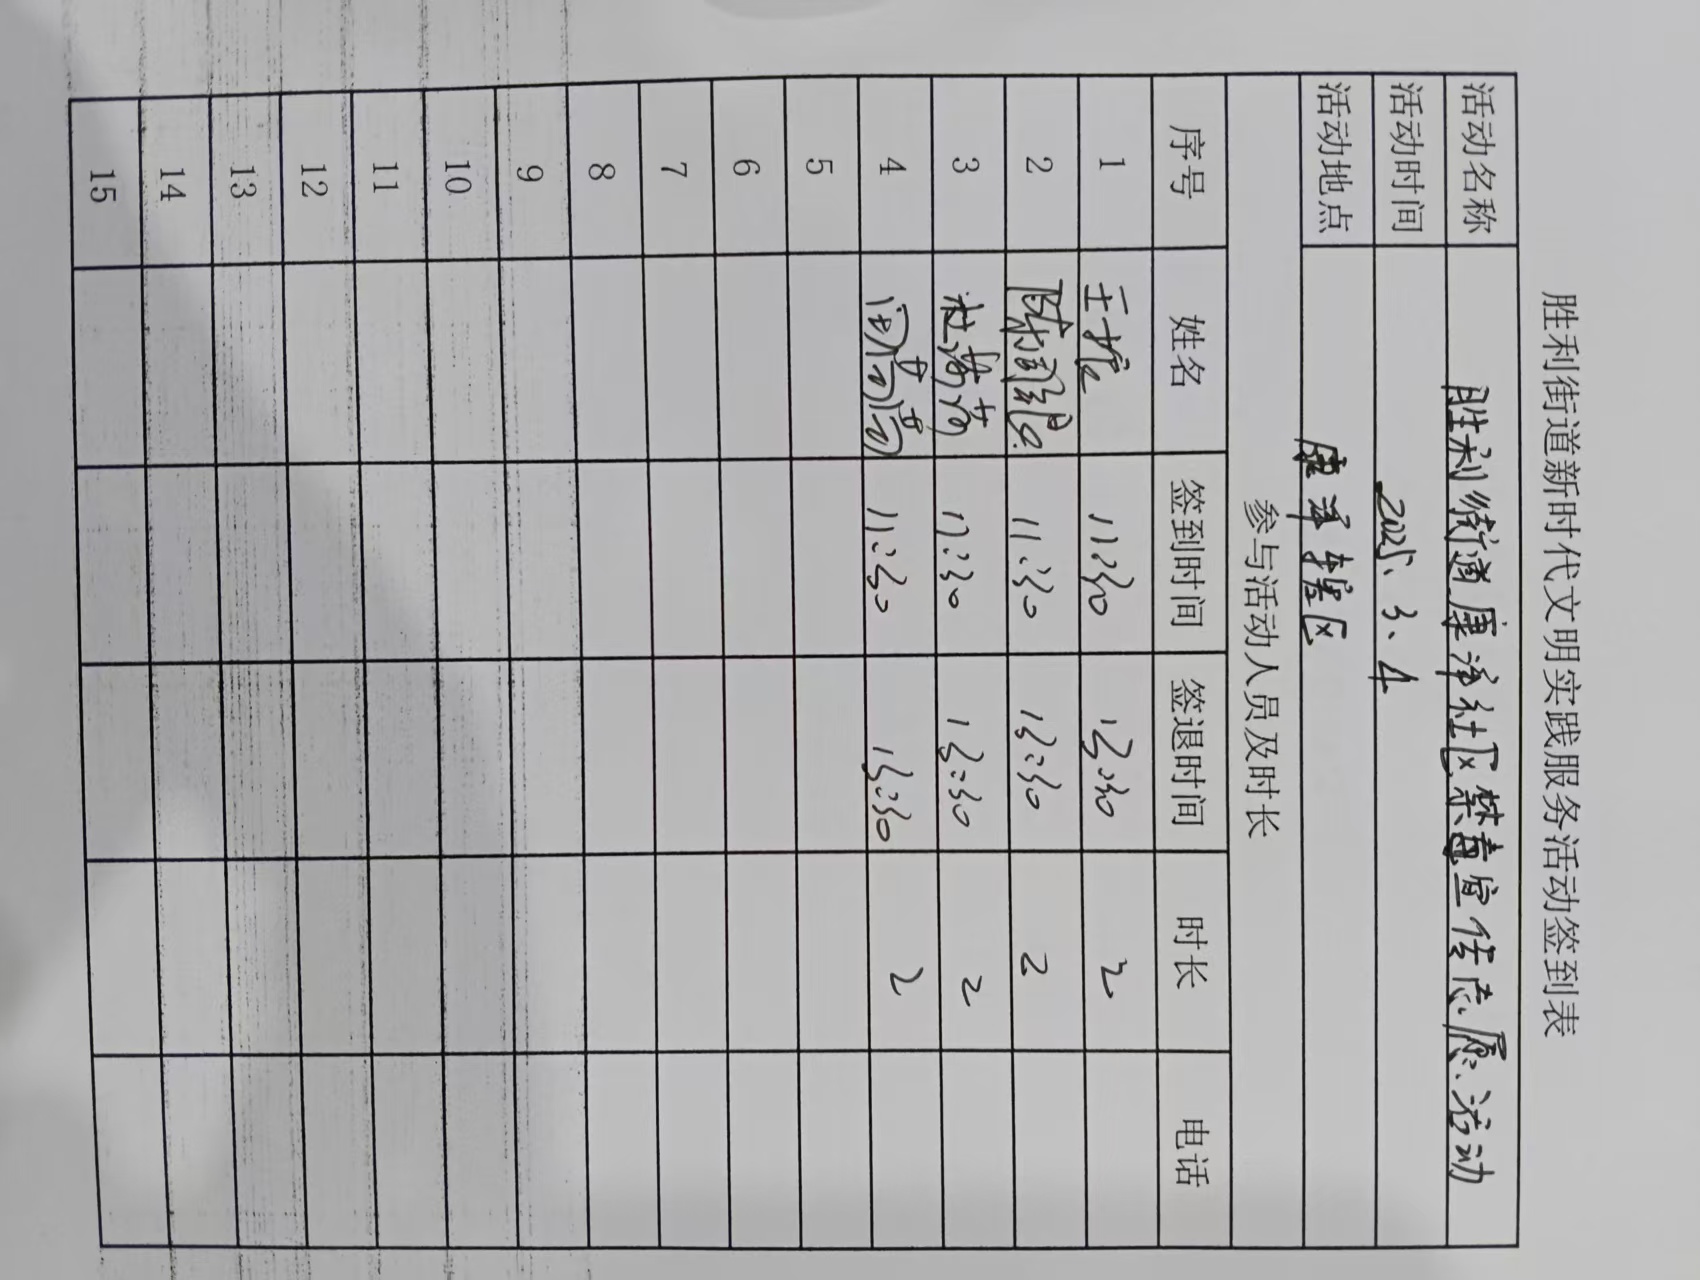 胜利街道新时代文明实践服务活动签到表
活动名称 胜利街道康泽社区禁毒宣传志愿活动
活动时间 2025、3、4
活动地点 康泽辖区
参与活动人员及时长
序号 姓名 签到时间 签退时间 时长 电话
1 11:30 13:30 2
2 陈 11:30 13:30 2
3 11:30 13:30 2
4 11:30 13:30 2
5
6
7
8
9
10
11
12
13
14
15